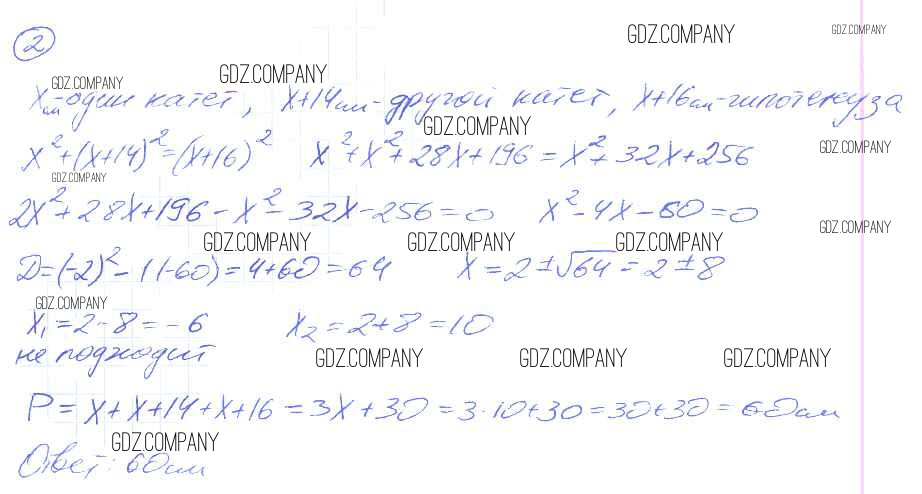 2
GDZ.COMPANY GDZ.COMPANY
GDZ.COMPANY GDZ.COMPANY
x см - один катет, x+14 см - другой катет, x+16 см - гипотенуза
GDZ.COMPANY
x²+(x+14)²=(x+16)² x²+x²+28x+196=x²+32x+256
GDZ.COMPANY GDZ.COMPANY
2x²+28x+196-x²-32x-256=0 x²-4x-60=0
GDZ.COMPANY GDZ.COMPANY GDZ.COMPANY GDZ.COMPANY
D=(-2)²-1(-60)=4+60=64 x=2±√64=2±8
GDZ.COMPANY
x₁=2-8=-6 x₂=2+8=10
не подходит
GDZ.COMPANY GDZ.COMPANY GDZ.COMPANY
P=x+x+14+x+16=3x+30=3·10+30=30+30=60см
GDZ.COMPANY
Ответ: 60см